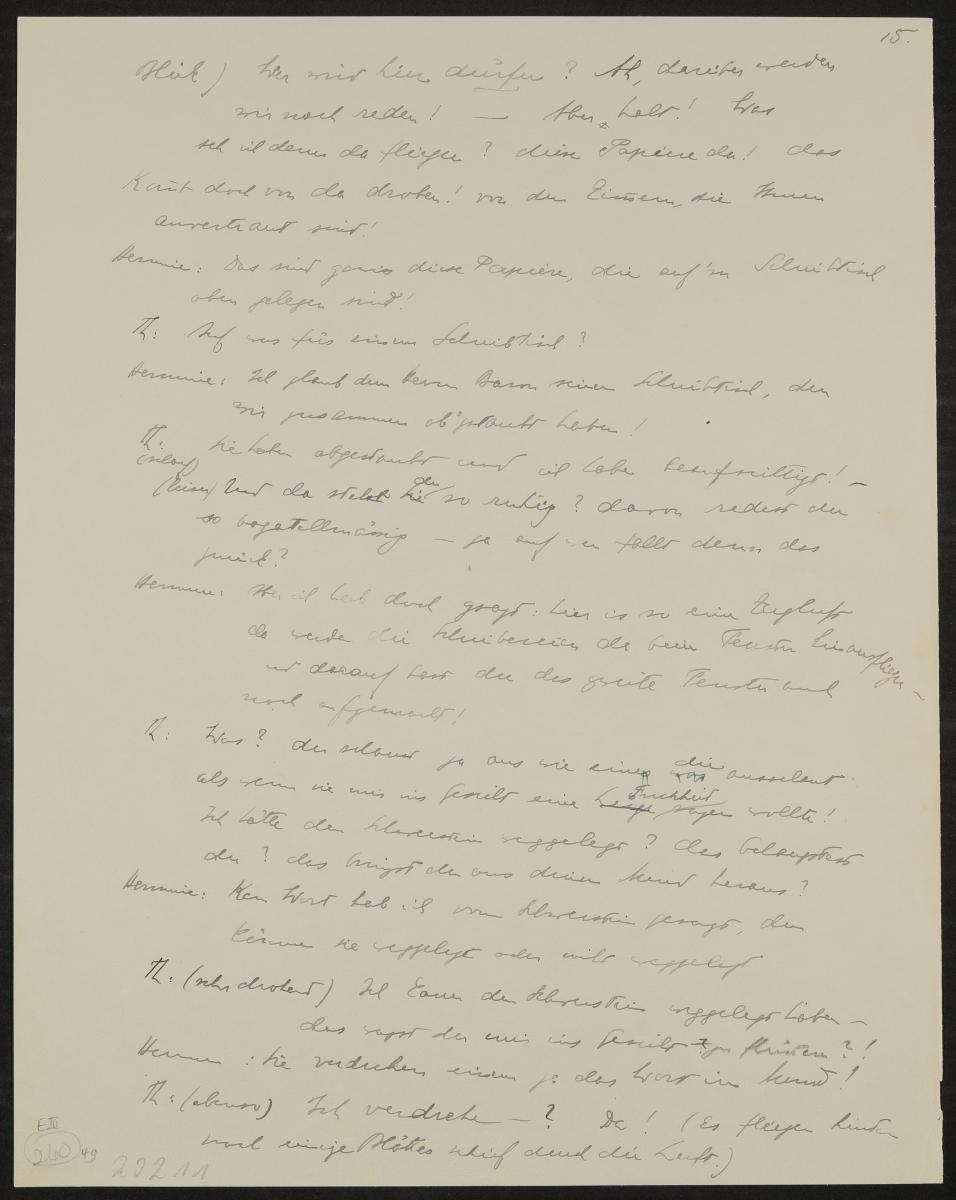 15.
Blick) Wer wird hier dürfen? Ah, darüber werden
wir noch reden! — Aber halt! Was
seh ich denn da fliegen? diese Papiere da! das
kommt doch von da droben! von den Zimmern, die Ihnen
anvertraut sind!
Hermine: Das sind gewiss diese Papiere, die auf'm Schreibtisch
oben gelegen sind!
Th: Auf was für einem Schreibtisch?
Hermine: Ich glaub dem Herrn Baron seinem Schreibtisch, den
wir zusammen ab'gstaubt haben!
Th: Sie haben abgestaubt und ich habe beaufsichtigt! —
(scharf)
(leiser) Und da stehst du so ruhig? davon redest du
so bagatellmässig — ja auf wen fällt denn das
zurück?
Hermine: ich hab doch gsagt: hier is so eine Zugluft
da werden die Schreibereien da beim Fenster hinausfliegen —
und darauf hast du das zweite Fenster auch
noch aufgemacht!
Th: Was? du schaust ja aus wie eine die ausschaut
als wenn sie mir ins Gesicht eine Frechheit sagen wollte!
Ich hätte den Schwerstein weggelegt? das behauptest
du? das bringst du aus deinem Mund heraus?
Hermine: Kein Wort hab ich vom Schwerstein gesagt, den
können Sie weggelegt oder nicht weggelegt
Th: (sehr drohend) Ich kann den Schwerstein weggelegt haben —
das wagst du mir ins Gesicht zu flüstern?!
Hermine: Sie verdrehen einem ja das Wort im Mund!
Th: (ebenso) Ich verdrehe —? Da! (Es fliegen hinten
noch einige Blätter schief durch die Luft.)
E III
240 49
20211